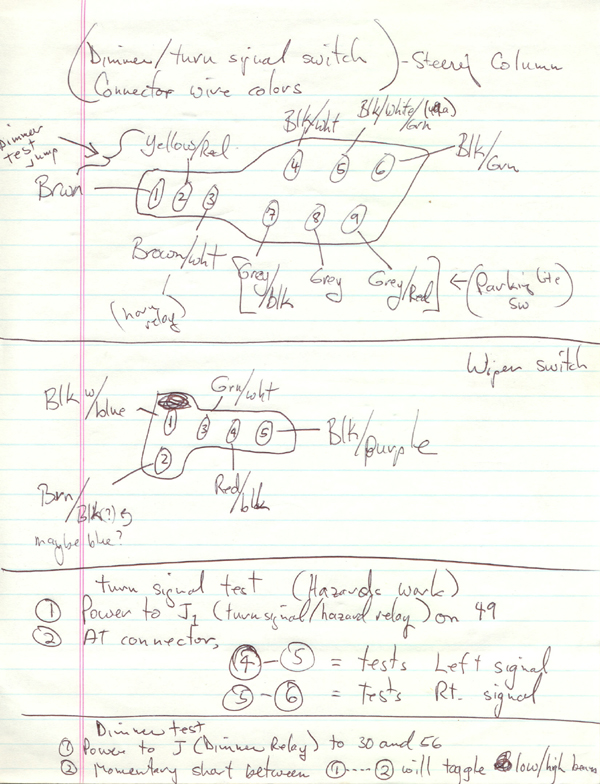 (Dimmer/turn signal switch) - Steer'g Column
Connector wire colors
Dimmer
test
jump
Yellow/Red
Blk/wht
Blk/white/
Grn
Blk/
Grn
Brwn
1 2 3
4 5 6
7 8 9
Brown/wht
(horn
relay)
[Grey/
blk
Grey
Grey/
Red]
← (Parking lite
sw)
Wiper switch
Blk w/
blue
Grn/wht
1 3 4 5
2
Blk/purple
Brn/
Blk(?)
maybe blue?
Red/
blk
turn signal test (Hazards work)
① Power to J1 (turn signal/hazard relay) on 49
② AT connector,
④-⑤ = tests Left signal
⑤-⑥ = tests Rt. signal
Dimmer test
① Power to J (Dimmer Relay) to 30 and 56
② Momentary short between ①----② will toggle low/high beam